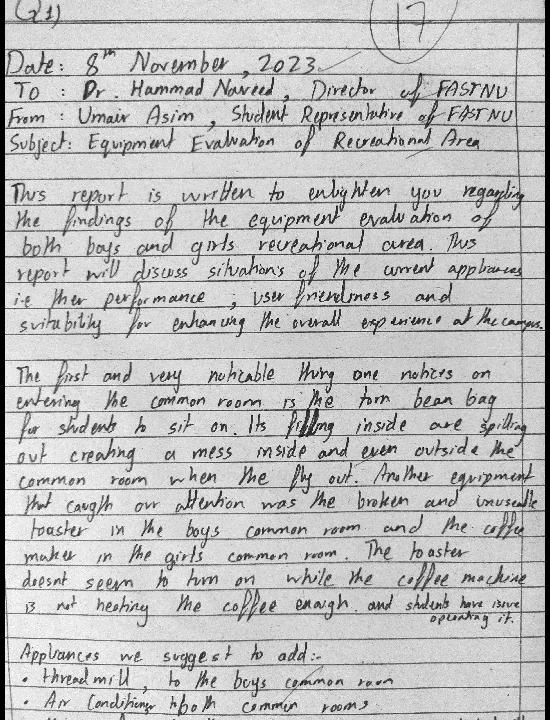 Q1)
17
Date: 8th November, 2023
To : Dr. Hammad Naveed, Director of FASTNU
From : Umair Asim, Student Representative of FASTNU
Subject: Equipment Evaluation of Recreational Area
This report is written to enlighten you regarding
the findings of the equipment evaluation of
both boys and girls recreational area. This
report will discuss situations of the current appliances
i.e ther performance ; user friendlness and
suitability for enhancing the overall experience at the campus.
The first and very noticable thing one notices on
entering the common room is the torn bean bag
for students to sit on. Its filling inside are spilling
out creating a mess inside and even outside the
common room when the fly out. Another equipment
that caugth our attention was the broken and unuseable
toaster in the boys common room and the coffee
maker in the girls common room. The toaster
doesnt seem to turn on while the coffee machine
is not heating the coffee enough. and students have issue
operating it.
Appliances we suggest to add:-
• thread mill, to the boys common room
• Air Conditioner to both common rooms